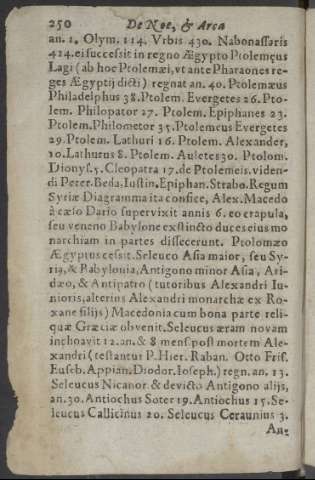 250 De Noe, & Arca
an. 1. Olym. 114. Vrbis 430. Nabonassaris
424. ei successit in regno Ægypto Ptolemęus
Lagi (ab hoc Ptolemæi, vt ante Pharaones re-
ges Ægyptij dicti) regnat an. 40. Ptolemæus
Philadelphus 38. Ptolem. Evergetes 26. Pto-
lem. Philopator 27. Ptolem. Epiphanes 23.
Ptolem. Philometor 35. Ptolemeus Evergetes
29. Ptolem. Lathuri 16. Ptolem. Alexander,
10. Lathurus 8. Ptolem. Auletes 30. Ptolom.
Dionys. 5. Cleopatra 17. de Ptolemeis. viden-
di Perer. Beda. Iustin, Epiphan. Strabo. Regum
Syriæ Diagramma ita confice, Alex. Macedo
à cæso Dario supervixit annis 6. eo crapula,
seu veneno Babylone exstincto duces eius mo
narchiam in partes dissecerunt. Ptolomæo
Ægyptus cessit. Seleuco Asia maior, seu Sy-
ria, & Babylonia, Antigono minor Asia, Ari-
dæo, & Antipatro (tutoribus Alexandri Iu-
nioris, alterius Alexandri monarchæ ex Ro-
xane filijs) Macedonia cum bona parte reli-
quæ Græciæ obvenit. Seleucus æram novam
inchoavit 12. an. & 8 mens. post mortem Ale-
xandri (testantur P. Hier. Raban. Otto Fris.
Euseb. Appian. Diodor. Ioseph.) regn. an. 13.
Seleucus Nicanor & devicto Antigono alijs,
an. 30. Antiochus Soter 19. Antiochus 15. Se-
leucus Callicinus 20. Seleucus Ceraunius 3.
An-